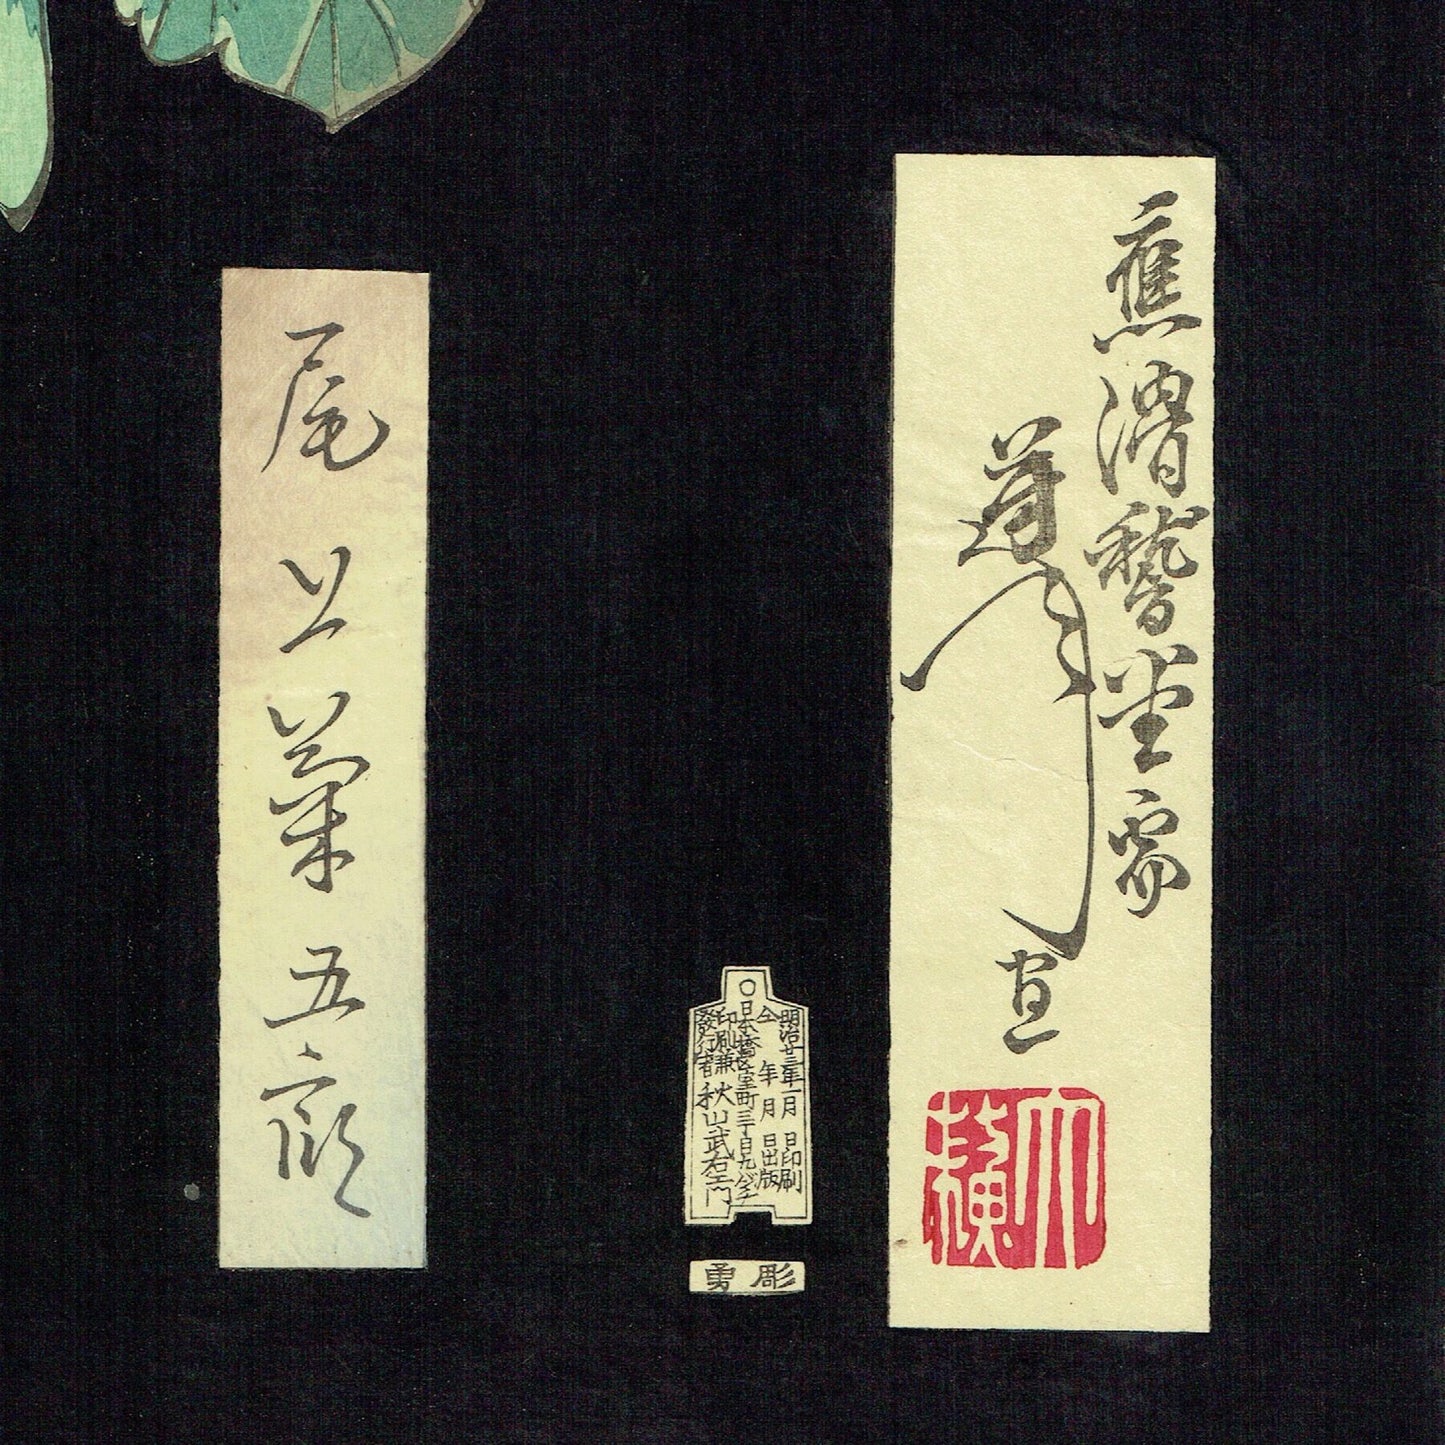 應滑稽堂需
芳年画
大蘓
明治廿三年一月　日印刷
仝　年　月　日出版
日本橋区室町三丁目九バンチ
印刷兼
發行者
秋山武右エ門
彫勇
尾上菊五郎